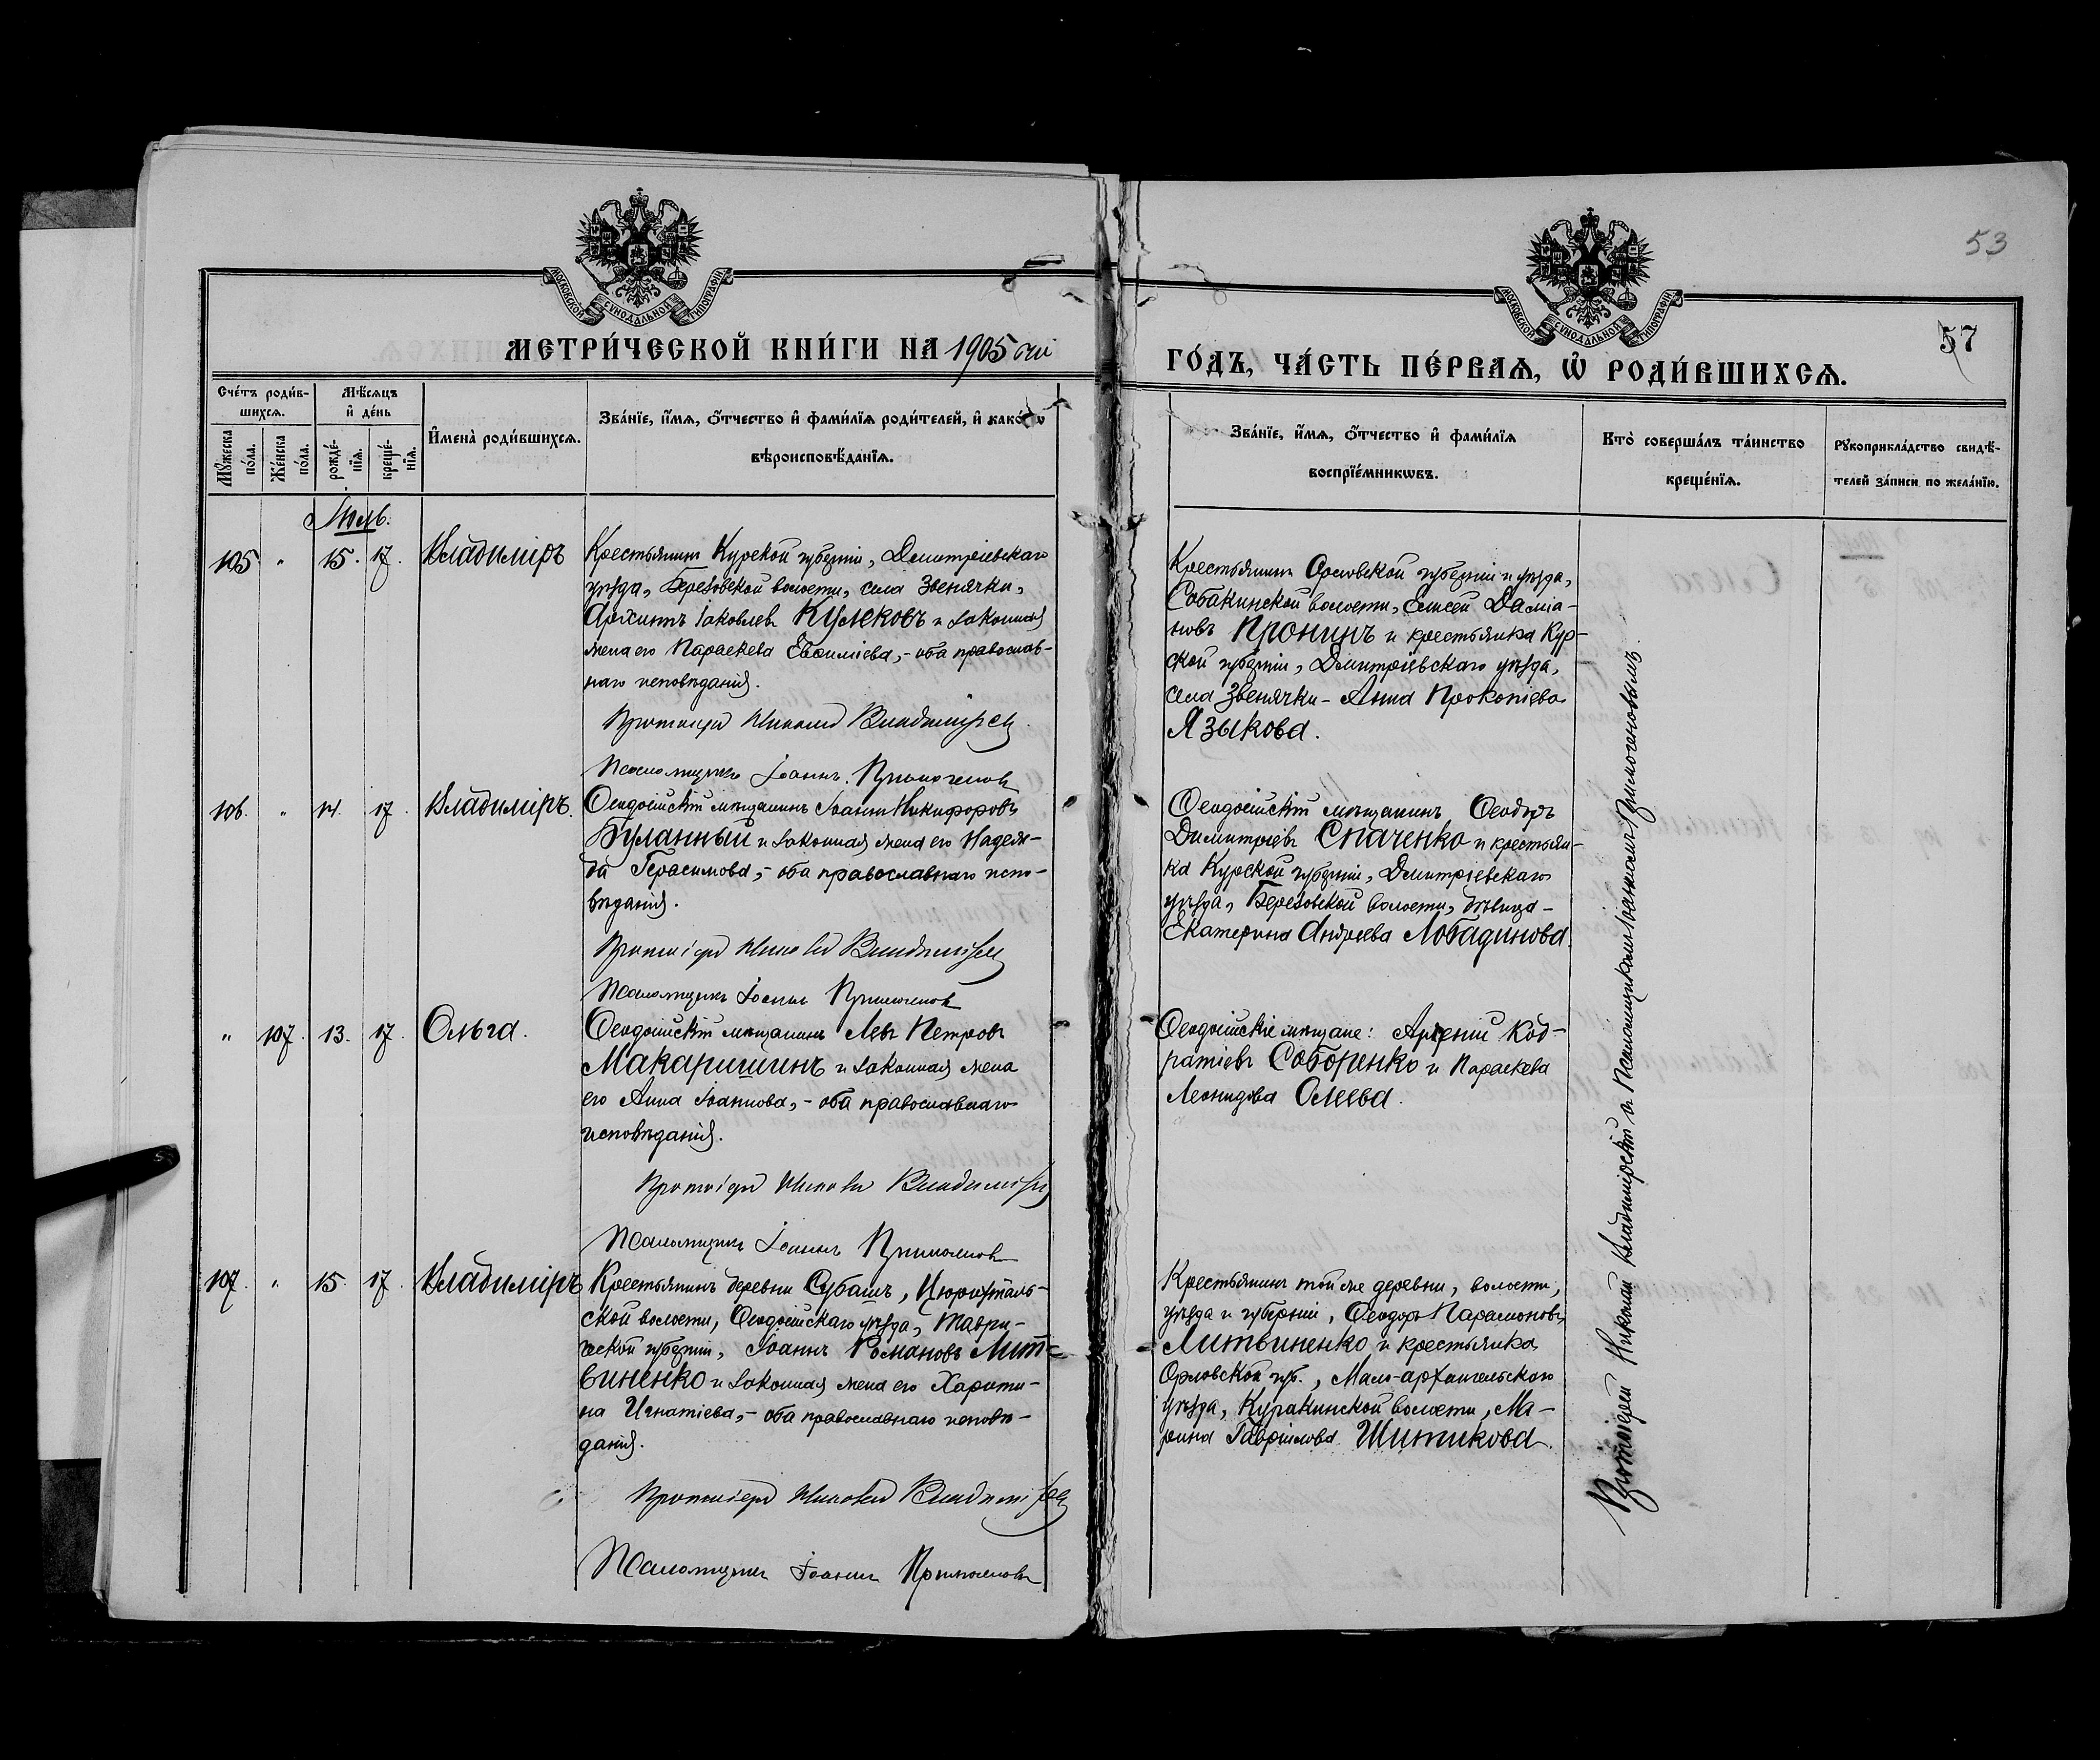 53
57
МОСКОВСКОЙ СѴНОДАЛЬНОЙ ТИПОГРАФІИ
МОСКОВСКОЙ СѴНОДАЛЬНОЙ ТИПОГРАФІИ
МЕТРИ́ЧЕСКОЙ КНИ́ГИ НА 1905 ый
ГО́ДЪ, ЧА́СТЬ ПЕ́РВАѦ, Ѡ҆ РОДИ́ВШИХСѦ.
Сче́тъ роди́в-
шихсѧ.
Мѣ́сѧцъ
и҆ де́нь
Мꙋ́жеска
по́ла.
Же́нска
по́ла.
рожде́-
нїѧ.
креще́-
нїѧ.
И҆мена̀ роди́вшихсѧ.
Зва́нїе, и҆́мѧ, ѻ҆́тчество и҆ фами́лїѧ роди́телей, и҆ како́гѡ
вѣроисповѣ́данїѧ.
Зва́нїе, и҆́мѧ, ѻ҆́тчество и҆ фами́лїѧ
воспрїе́мникѡвъ.
Кто̀ соверша́лъ та́инство
креще́нїѧ.
Рꙋкоприкла́дство свидѣ́-
телей за́писи по жела́нїю.
Іюль.
105 " 15. 17. Владиміръ
Крестьянинъ Курской губерніи, Димитріевскаго
уѣзда, Березовской волости, села Звенячки,
Архиппъ Іаковлевъ Кулековъ и законная
жена его Параскева Евфиміева, - оба православ-
наго исповѣданія.
Протоіерей Николай Владимірскій
Псаломщикъ Іоаннъ Примогеновъ
Крестьянинъ Орловской губерніи и уѣзда,
Собакинской волости, Елисей Даміа-
новъ Пронинъ и крестьянка Кур-
ской губерніи, Димитріевскаго уѣзда,
села Звенячки - Анна Прокопіева
Языкова.
106. " 14. 17. Владиміръ.
Ѳеодосійскій мѣщанинъ Іоаннъ Никифоровъ
Буланный и законная жена его Надеж-
да Герасимова, - оба православнаго испо-
вѣданія.
Протоіерей Николай Владимірскій
Псаломщикъ Іоаннъ Примогеновъ
Ѳеодосійскій мѣщанинъ Ѳеодоръ
Димитріевъ Спаченко и крестьян-
ка Курской губерніи, Димитріевскаго
уѣзда, Березовской волости, дѣвица -
Екатерина Андреева Лобадинова.
" 107. 13. 17. Ольга.
Ѳеодосійскій мѣщанинъ Левъ Петровъ
Макаришинъ и законная жена
его Анна Іоаннова, - оба православнаго
исповѣданія.
Протоіерей Николай Владимірскій
Псаломщикъ Іоаннъ Примогеновъ
Ѳеодосійскіе мѣщане: Арсеній Код-
ратіевъ Соборенко и Параскева
Леонидова Олеева.
107. " 15. 17. Владиміръ
Крестьянинъ деревни Субашъ, Цюрихталь-
ской волости, Ѳеодосійскаго уѣзда, Таври-
ческой губерніи, Іоаннъ Романовъ Лит-
виненко и законная жена его Харити-
на Игнатіева, - оба православнаго исповѣ-
данія.
Протоіерей Николай Владимірскій
Псаломщикъ Іоаннъ Примогеновъ
Крестьянинъ той же деревни, волости,
уѣзда и губерніи, Ѳеодоръ Парамоновъ
Литвиненко и крестьянка
Орловской губ., Мало-архангельскаго
уѣзда, Куракинской волости, Ма-
рина Гавріилова Шитикова.
Протоіерей Николай Владимірскій съ Псаломщикомъ Іоанномъ Примогеновымъ.